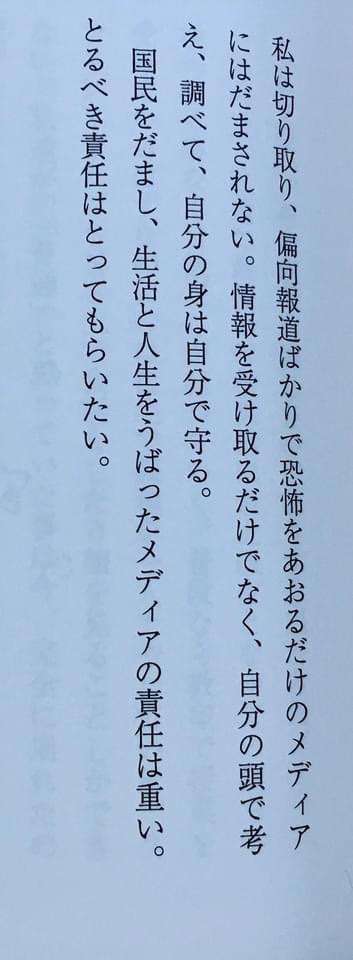 私は切り取り、偏向報道ばかりで恐怖をあおるだけのメディア
にはだまされない。情報を受け取るだけでなく、自分の頭で考
え、調べて、自分の身は自分で守る。
国民をだまし、生活と人生をうばったメディアの責任は重い。
とるべき責任はとってもらいたい。